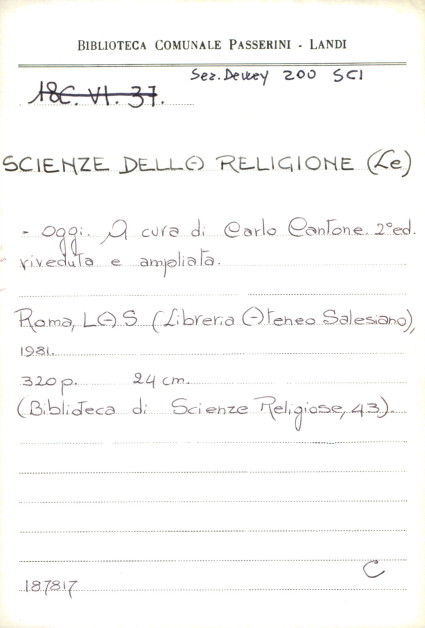 BIBLIOTECA COMUNALE PASSERINI - LANDI
Sez. Dewey 200 SCI
18C. VI. 37.
SCIENZE DELLA RELIGIONE (Le)
- oggi. A cura di Carlo Cantone. 2° ed.
riveduta e ampliata.
Roma, LAS (Libreria Ateneo Salesiano),
1981.
320 p. 24 cm.
(Biblioteca di Scienze Religiose, 43).
C
187817